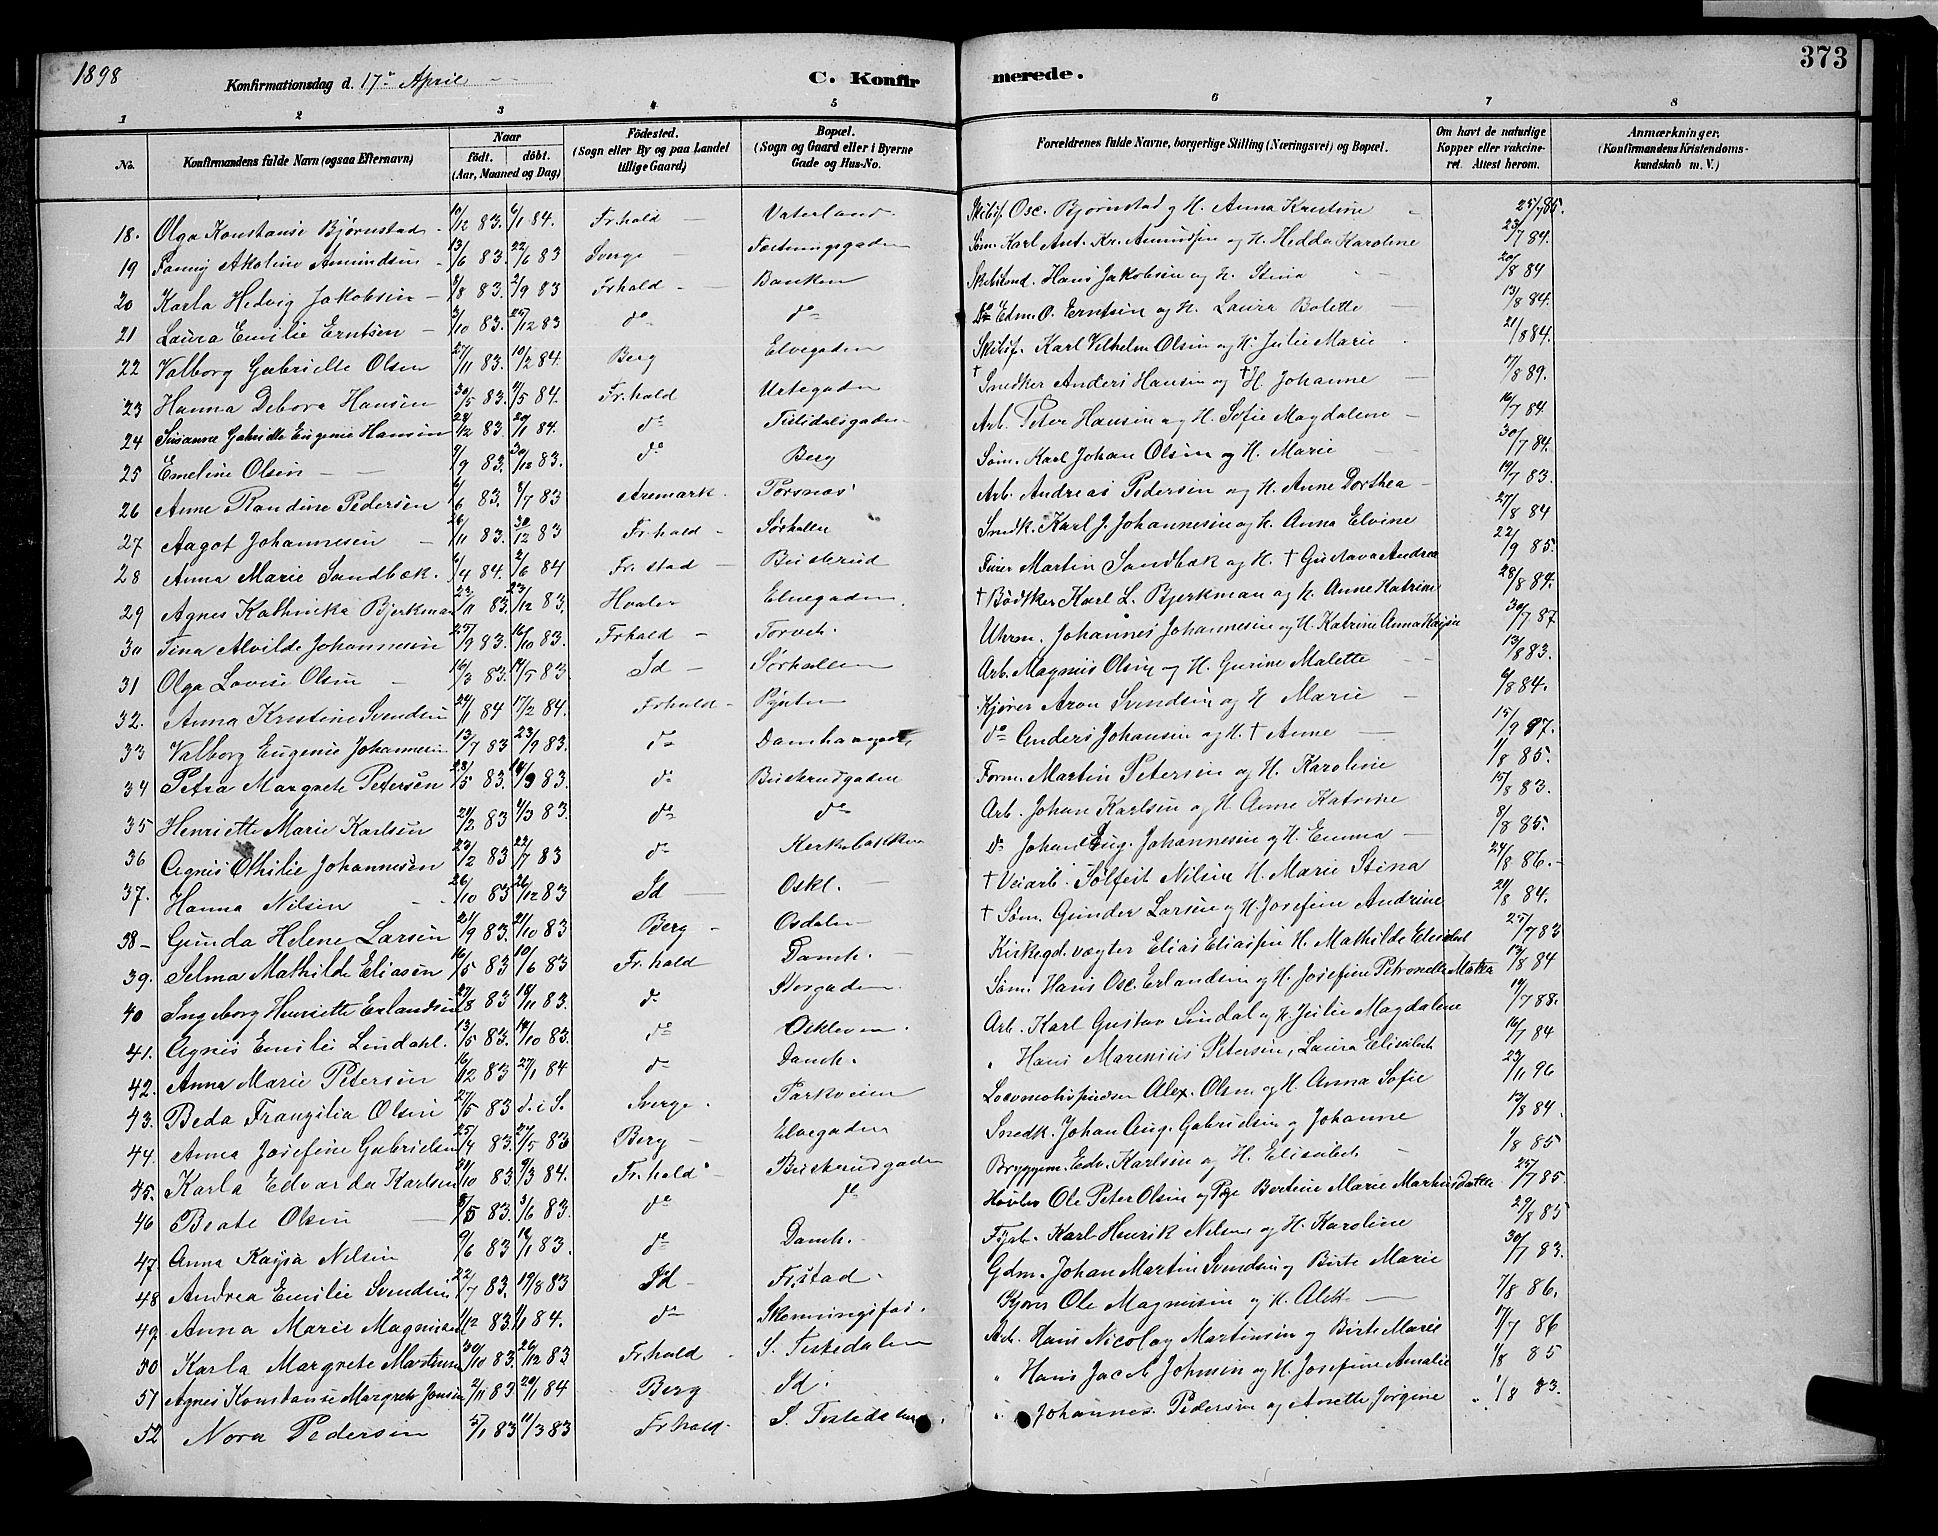 1898
Konfirmationsdag d. 17de April
C. Konfirmerede.
373
1 2 3 4 5 6 7 8
No. Konfirmandens fulde Navn (ogsaa Efternavn) Naar født. døbt. (Aar, Maaned og Dag) Födested. (Sogn eller By og paa Landet tillige Gaard) Bopæl. (Sogn og Gaard eller i Byerne Gade og Hus-No. Forældrenes fulde Navne, borgerlige Stilling (Næringsvei) og Bopæl. Om havt de naturlige Kopper eller vakcineret. Attest herom. Anmærkninger. (Konfirmandens Kristendomskundskab m. V.)
18. Olga Konstanse Bjørnstad 10/12 83. 6/1 84. Fr.hald Vaterland Skibsf. Osc. Bjørnstad og H. Anna Kristine 25/7 85.
19 Fanny Akoline Amundsen 13/6 83. 22/6 83 Sverge Fæstningsgaden Søm. Karl Ant. Kr. Amundsen og H. Hedda Karoline 23/7 84.
20 Karla Hedvig Jakobsen 9/8 83. 2/9 83 Frhald Banken Hans Jakobsen og H. Stina 20/8 84
21 Laura Emilie Erntsen 3/10 83. 25/12 83 do do Do Edm. O. Erntsen og H. Laura Bolette 13/8 84.
22 Valborg Gabrielle Olsen 27/11 83. 10/2 84. Berg Elvegaden Skibsf. Karl Vilhelm Olsen og H. Julie Marie 21/8 84.
23 Hanna Debora Hansen 30/5 83. /5 84. Fr.hald Urtegaden † Snedker Anders Hansen og † H. Johanne 17/8 89.
24 Susanne Gabrielle Eugenie Hansen 28/12 83. 20/1 84. do Tistedalsgaden Arb. Peter Hansen og H. Sofie Magdalene 16/7 84.
25 Emeline Olsen 9/9 83. 30/12 83. do Berg Søm. Karl Johan Olsen og H. Marie 30/7 84.
26 Anne Randine Pedersen 6/6 83. 8/7 83 Aremark. Torsnæs Arb. Andreas Pedersen og H. Anne Dorthea 19/7 83.
27 Aagot Johannesen 26/11 83. 30/12 83 Fr.hald Sørhallen Snedk. Karl J. Johannesen og H. Anna Elvine 27/8 84
28 Anna Marie Sandbæk. 6/4 84. 2/6 84 Fr.stad Buskrud Furer Martin Sandbæk og H. † Gustava Andrea 22/9 85.
29 Agnes Kathinka Bjerkman 23/11 83. 23/12 83. Hvaler Elvegaden. † Bødtker Karl L. Bjerkman og H. Anne Katrine 28/8 84.
30 Tina Alvilde Johannesen 25/9 83. 16/10 83. Frhald Torvet. Uhrm. Johannes Johannesen og H. Katrine Anna Kajsa 30/7 87
31 Olga Lovise Olsen 16/3 83. 14/5 83 Id Sørhallen Arb. Magnus Olsen og H. Gurine Malette 13/8 83.
32. Anna Kristine Svendsen 24/1 84 17/2 84. Frhald Pynten Kjører Aron Svendsen og H Marie 6/8 84.
33 Valborg Eugenie Johannesen 13/7 83 23/9 83. do Damhaugen do Anders Johansen og H. † Anne 15/9 97.
34 Petra Margrete Petersen 28/5 83. 16/9 83. do Buskrudgaden Form. Martin Petersen og H. Karoline 1/8 85.
35 Henriette Marie Karlsen 24/2 83 4/3 83. do do Arb. Johan Karlsen og H Anne Katrine 15/8 83.
36 Agnes Othilie Johannesen 23/2 83 22/7 83 do Kirkebakken Do Johan Eug. Johannesen og H. Emma 8/8 85.
37. Hanna Nilsen 26/10 83 26/12 83 Id Oskl. † Veiarb. Sølfest Nilsen H. Marie Stina 24/8 86.
38 Gunda Helene Larsen 21/9 83. 21/10 83 Berg Osdalen † Søm. Gunder Larsen og H. Josefine Andrine 21/8 84.
39. Selma Mathilde Eliasen 16/5 83 10/6 83 Fr.hald Damh. Kirkegd.vægter Elias Eliassen H. Mathilde Elisabet 25/7 83
40 Ingeborg Henriette Erlandsen 27/8 83 18/11 83. do Storgaden. Søm. Hans Osc. Erlandsen og H. Josefine Petronelle Mathea 13/8 84
41. Agnes Emilie Lindahl. 13/5 83. 14/10 83. do Oskleven. Arb. Karl Gustav Lindal og H. Julie Magdalene 14/7 88.
42. Anna Marie Petersen 16/12 83 27/1 84 do Damh. " Hans Marenius Petersen, Laura Elisabet 16/7 84
43. Beda Franzilia Olsen 27/5 83 d. i S. Sverge. Parkveien Locomotivpudser Alex. Olsen og H. Anna Sofie 23/11 96
44. Anna Josefine Gabrielsen 25/4 83. 27/5 83 Berg Elvegaden Snedk. Johan Aug. Gabrielsen og Johanne 13/8 84.
45. Karla Edvarda Karlsen 21/10 83 9/3 84. Fr.hald Buskrudgaden Bryggem. Edv. Karlsen og H. Elisabet 1/8 85
46 Beate Olsen 8/5 83. 3/6 83. do do Høvler Ole Peter Olsen og Pge Bertine Marie Martinsdatter 25/7 85
47 Anna Kajsa Nilsen 9/6 83 18/1 83. do Damh. Fyrb. Karl Henrik Nilsen og H. Karoline 29/8 85
48 Andrea Emilie Svendsen 22/7 83. 19/8 83 Id Fr.stad Gdm. Johan Martin Svendsen og Birte Marie 30/7 83.
49. Anna Marie Magnusen 11/12 83. 1/1 84. do Skonningsfos. Kjører Ole Magnusen og H. Alette 7/8 86.
50 Karla Margrete Martinsen 30/10 83. 26/12 83 Frhald S. Tistedalen Arb. Hans Nicolay Martinsen og Birte Marie 17/7 86
51 Agnes Konstanse Margrete Jonsen 2/11 83 20/1 84 Berg Id. " Hans Jacob Johnsen og H. Josefine Amalie 1/8 85
52 Nora Pedersen 5/1 83 11/3 83 Frhald. S. Tistedalen. " Johannes Pedersen og Anette Jørgine 1/8 83.